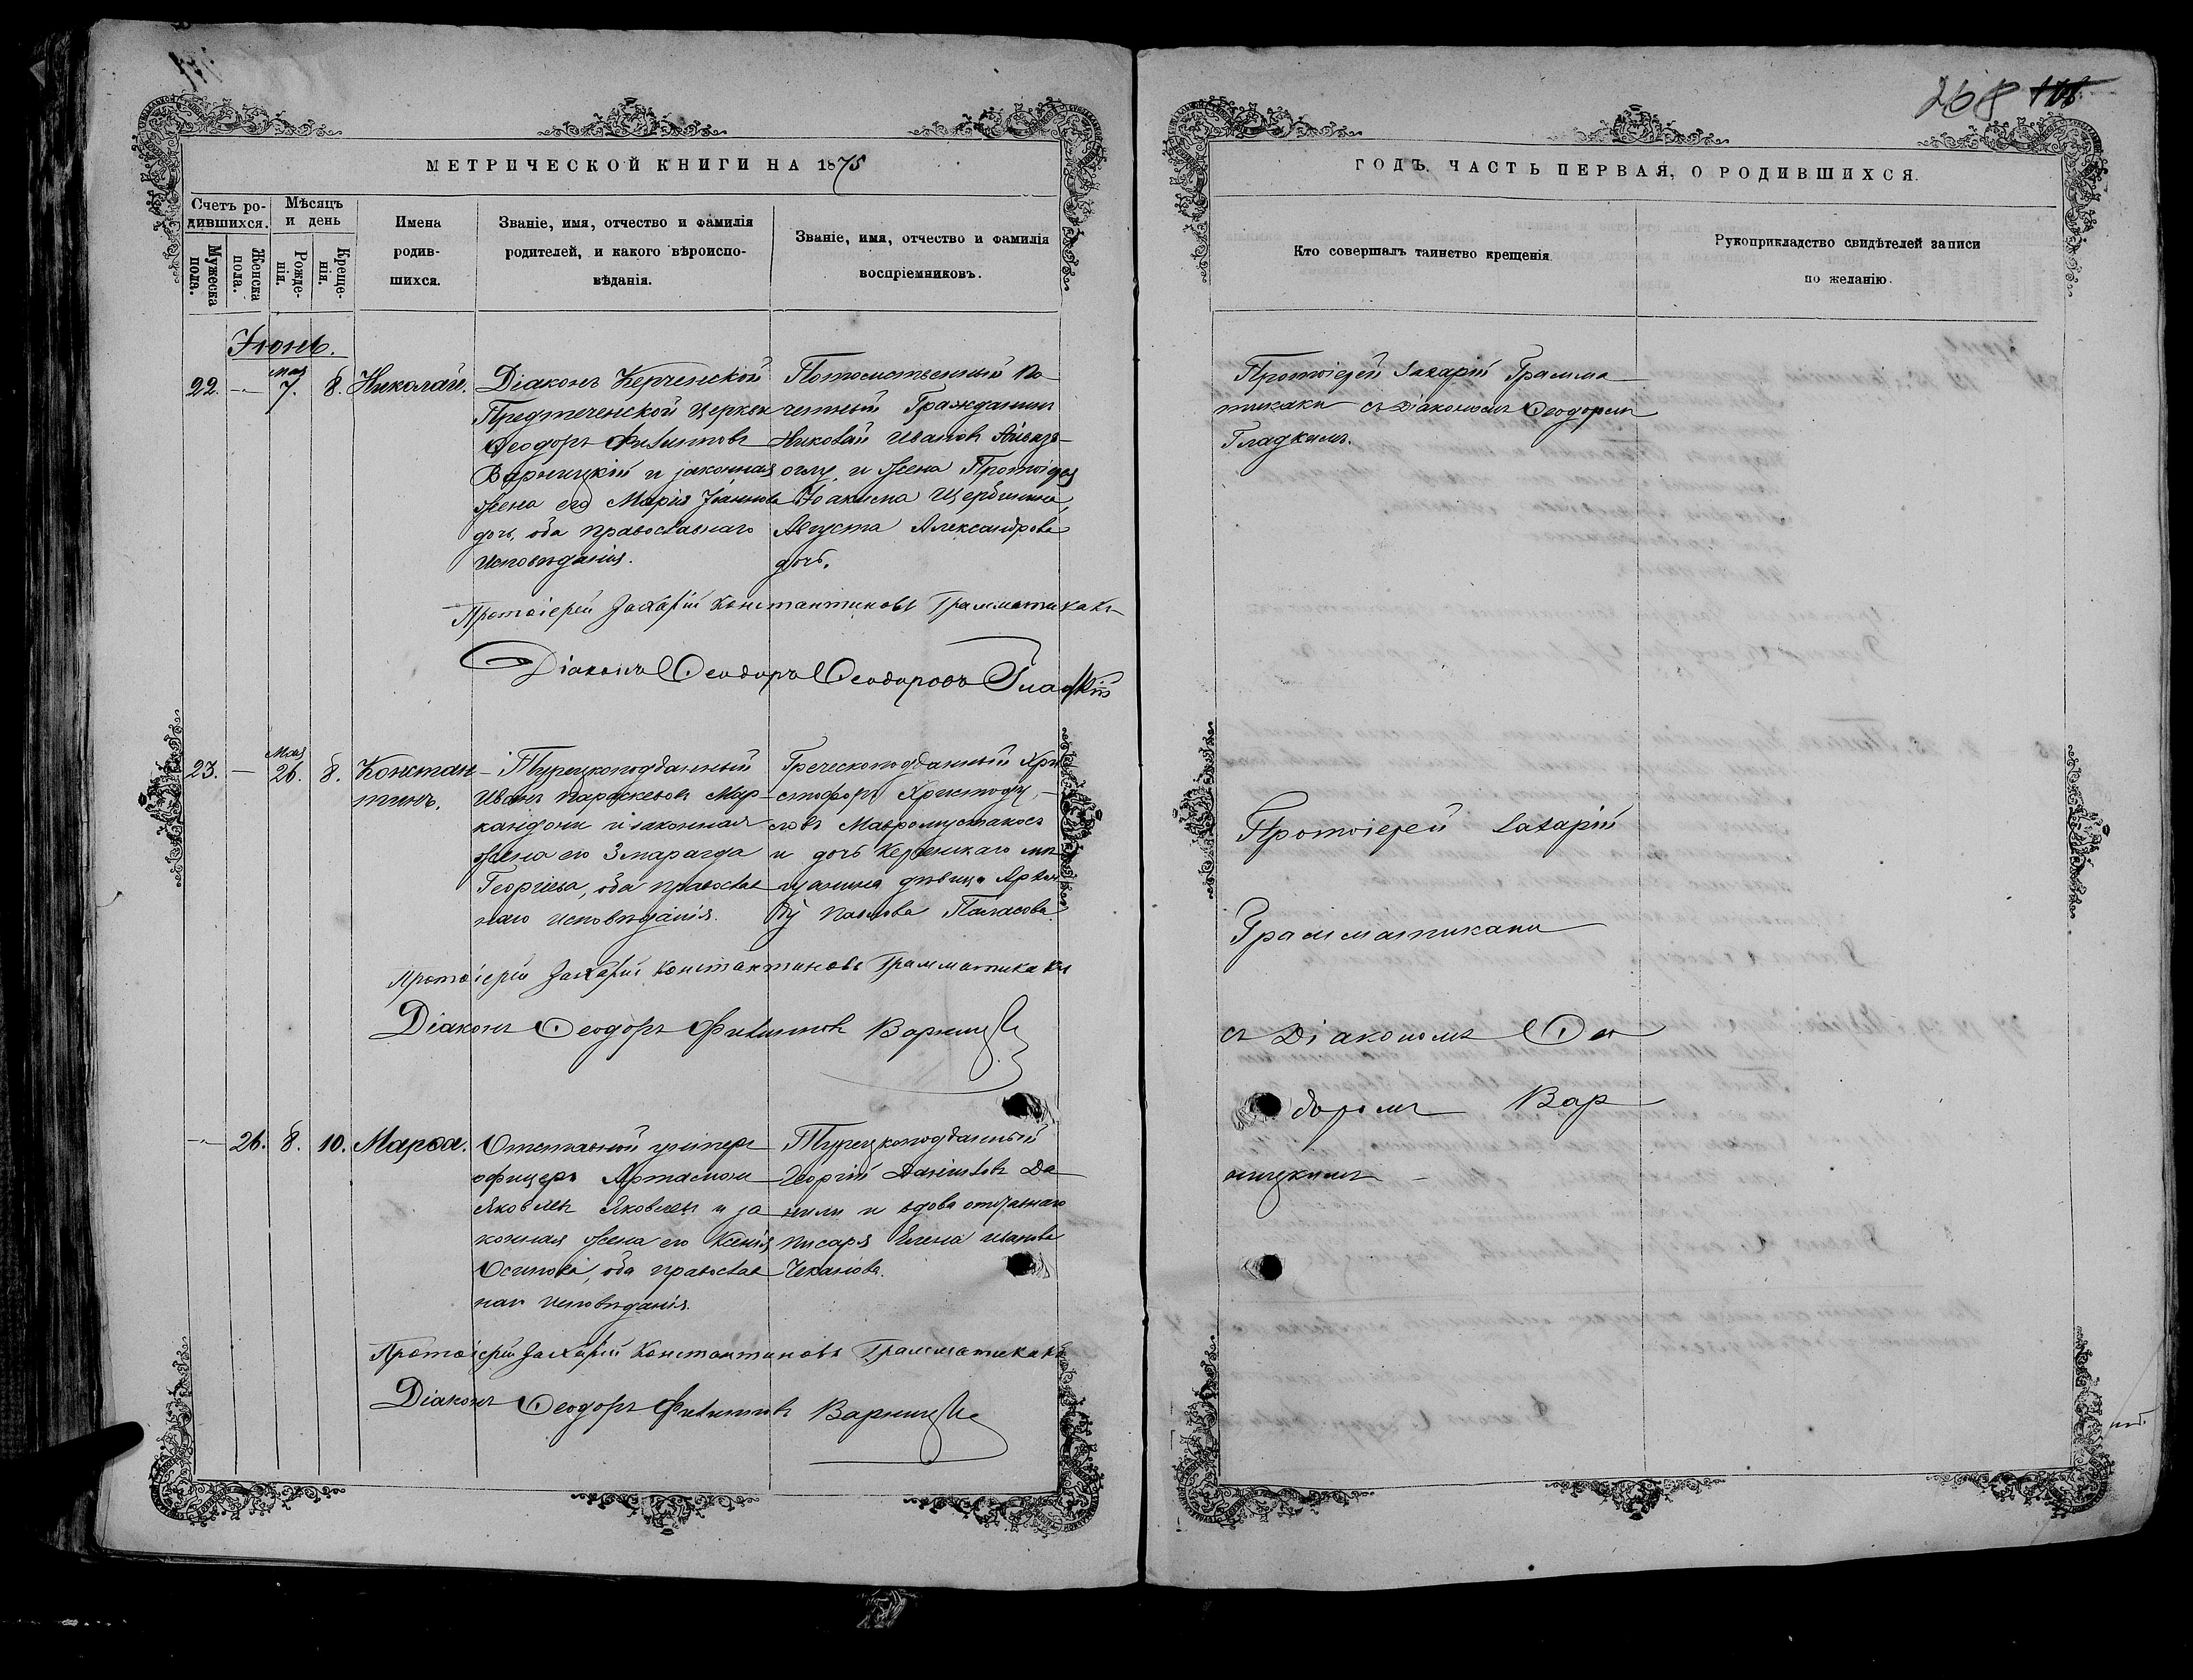 268 108
МЕТРИЧЕСКОЙ КНИГИ НА 1875
ГОДЪ. ЧАСТЬ ПЕРВАЯ, О РОДИВШИХСЯ.
Счетъ ро-
дившихся.
Мужеска
пола.
Женска
пола.
Мѣсяцъ
и день
Рожде-
нія.
Креще-
нія.
Имена
родив-
шихся.
Званіе, имя, отчество и фамилія
родителей, и какого вѣроиспо-
вѣданія.
Званіе, имя, отчество и фамилія
воспріемниковъ.
Кто совершалъ таинство крещенія.
Рукоприкладство свидѣтелей записи
по желанію.
Іюнь.
22. — Мая 7. 8. Николай.
Діаконъ Керченской
Предтеченской Церкви
Ѳеодоръ Филиповъ
Варницкій и законная
жена его Марія Іоаннова
дочь, оба православнаго
исповѣданія.
Потомственный По-
четный Гражданинъ
Николай Ивановъ
оглу, и жена Протоіерея
Іоакима Щербинина,
Августа Александрова
дочь.
Протоіерей Захарій Грамма-
тикаки съ Діакономъ Ѳеодоромъ
Гладкимъ.
Протоіерей Захарій Константиновъ Грамматикаки
Діаконъ Ѳеодоръ Ѳеодоровъ Гладкій
23. — Мая 26. 8. Констан-
тинъ.
Турецкоподданный
Иванъ Параскевовъ Мар-
кандони и законная
жена его Змарагда
Георгіева, оба православ
наго исповѣданія.
Греческоподданный Хри
стофоръ Христоду-
ловъ Мавромустакосъ
и дочь Керченскаго мѣ
щанина дѣвица
Павлова
Протоіерей Захарій
Грамматикаки
съ Діакономъ Ѳео
доромъ Вар
ницкимъ
Протоіерей Захарій Константиновъ Грамматикаки
Діаконъ Ѳеодоръ Филиповъ Варницкій
— 26. 8. 10. Марѳа.
Отставной унтеръ
офицеръ Артамонъ
Яковлевъ Яковлевъ и за
конная жена его Ксенія
Осипова, оба православ
наго исповѣданія.
Турецкоподданный
Георгій Даниловъ Да
нили и вдова отставнаго
писаря Елена Иванова
Чеканова.
Протоіерей Захарій Константиновъ Грамматикаки
Діаконъ Ѳеодоръ Филиповъ Варницкій